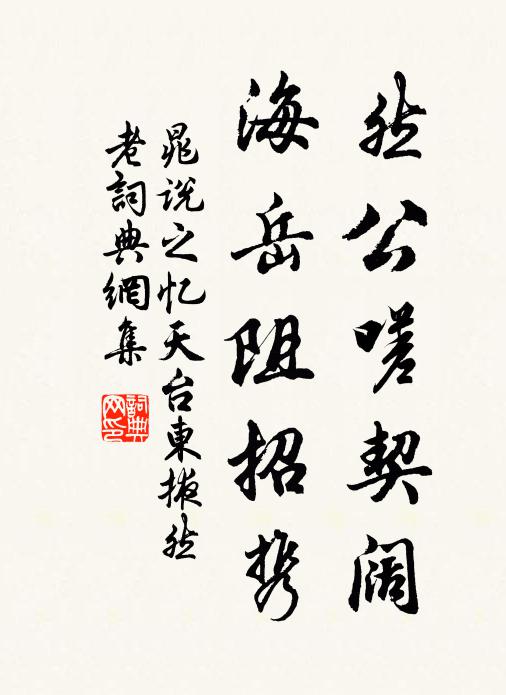 然公嗟契阔
海岳阻招携
晁说之忆天台東掖然
老詞典網集
詞典网印